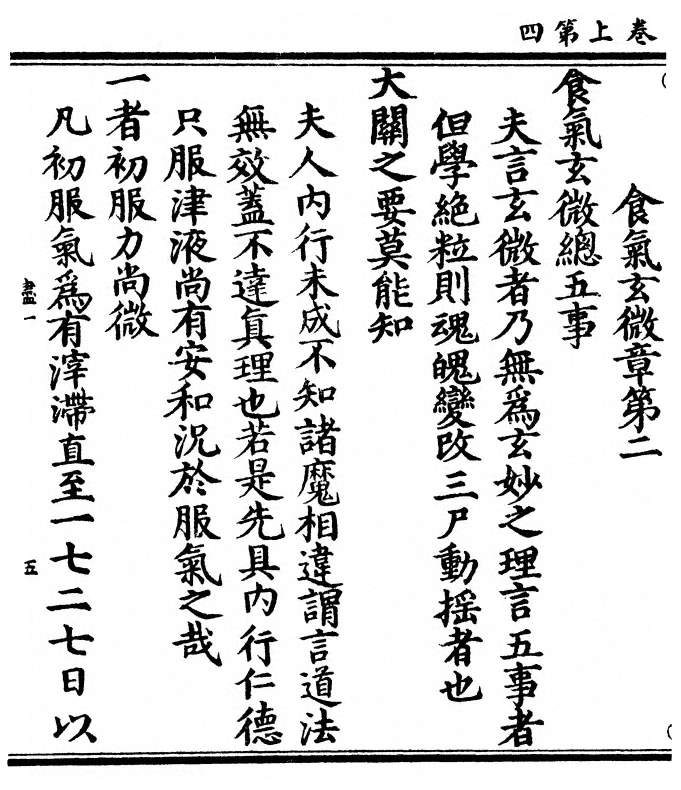 卷上第四
食氣玄微章第二
食氣玄微總五事
夫言玄微者乃無爲玄妙之理言五事者
但學絶粒則魂魄變改三尸動摇者也
大關之要莫能知
夫人内行未成不知諸魔相違謂言道法
無效蓋不達眞理也若是先具内行仁德
只服津液尚有安和況於服氣之哉
一者初服力尚微
凡初服氣爲有滓滯直至一七二七日以
盡一
五